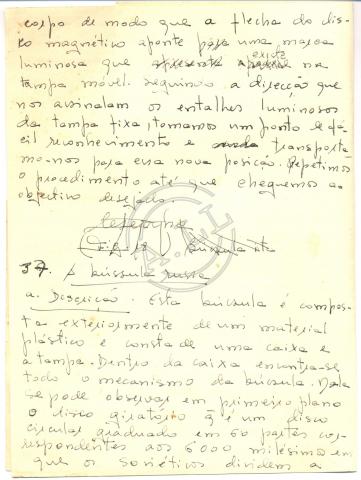 corpo de modo que a flecha do dis-
co magnético aponte para uma marca
luminosa que apresenta existe na
tampa móvel. Seguindo a direcção que
nos assinalam os entalhes luminosos
da tampa fixa, tomamos um ponto de fá-
cil reconhecimento e transporta
mo-nos para essa nova posição. Repetimos
o procedimento até que cheguemos ao
objectivo desejado.
(Fig. 18) bússula
37. A bússula russa
a. Descrição. Esta bússula é compos-
ta exteriormente de um material
plástico e consta de uma caixa e
a tampa. Dentro da caixa encontra-se
todo o mecanismo da bússula. Nela
se pode observar em primeiro plano
o disco giratório q̃ é um disco
circular graduado em 60 partes cor-
respondentes aos 6000 milésimos em
que os soviéticos dividem a